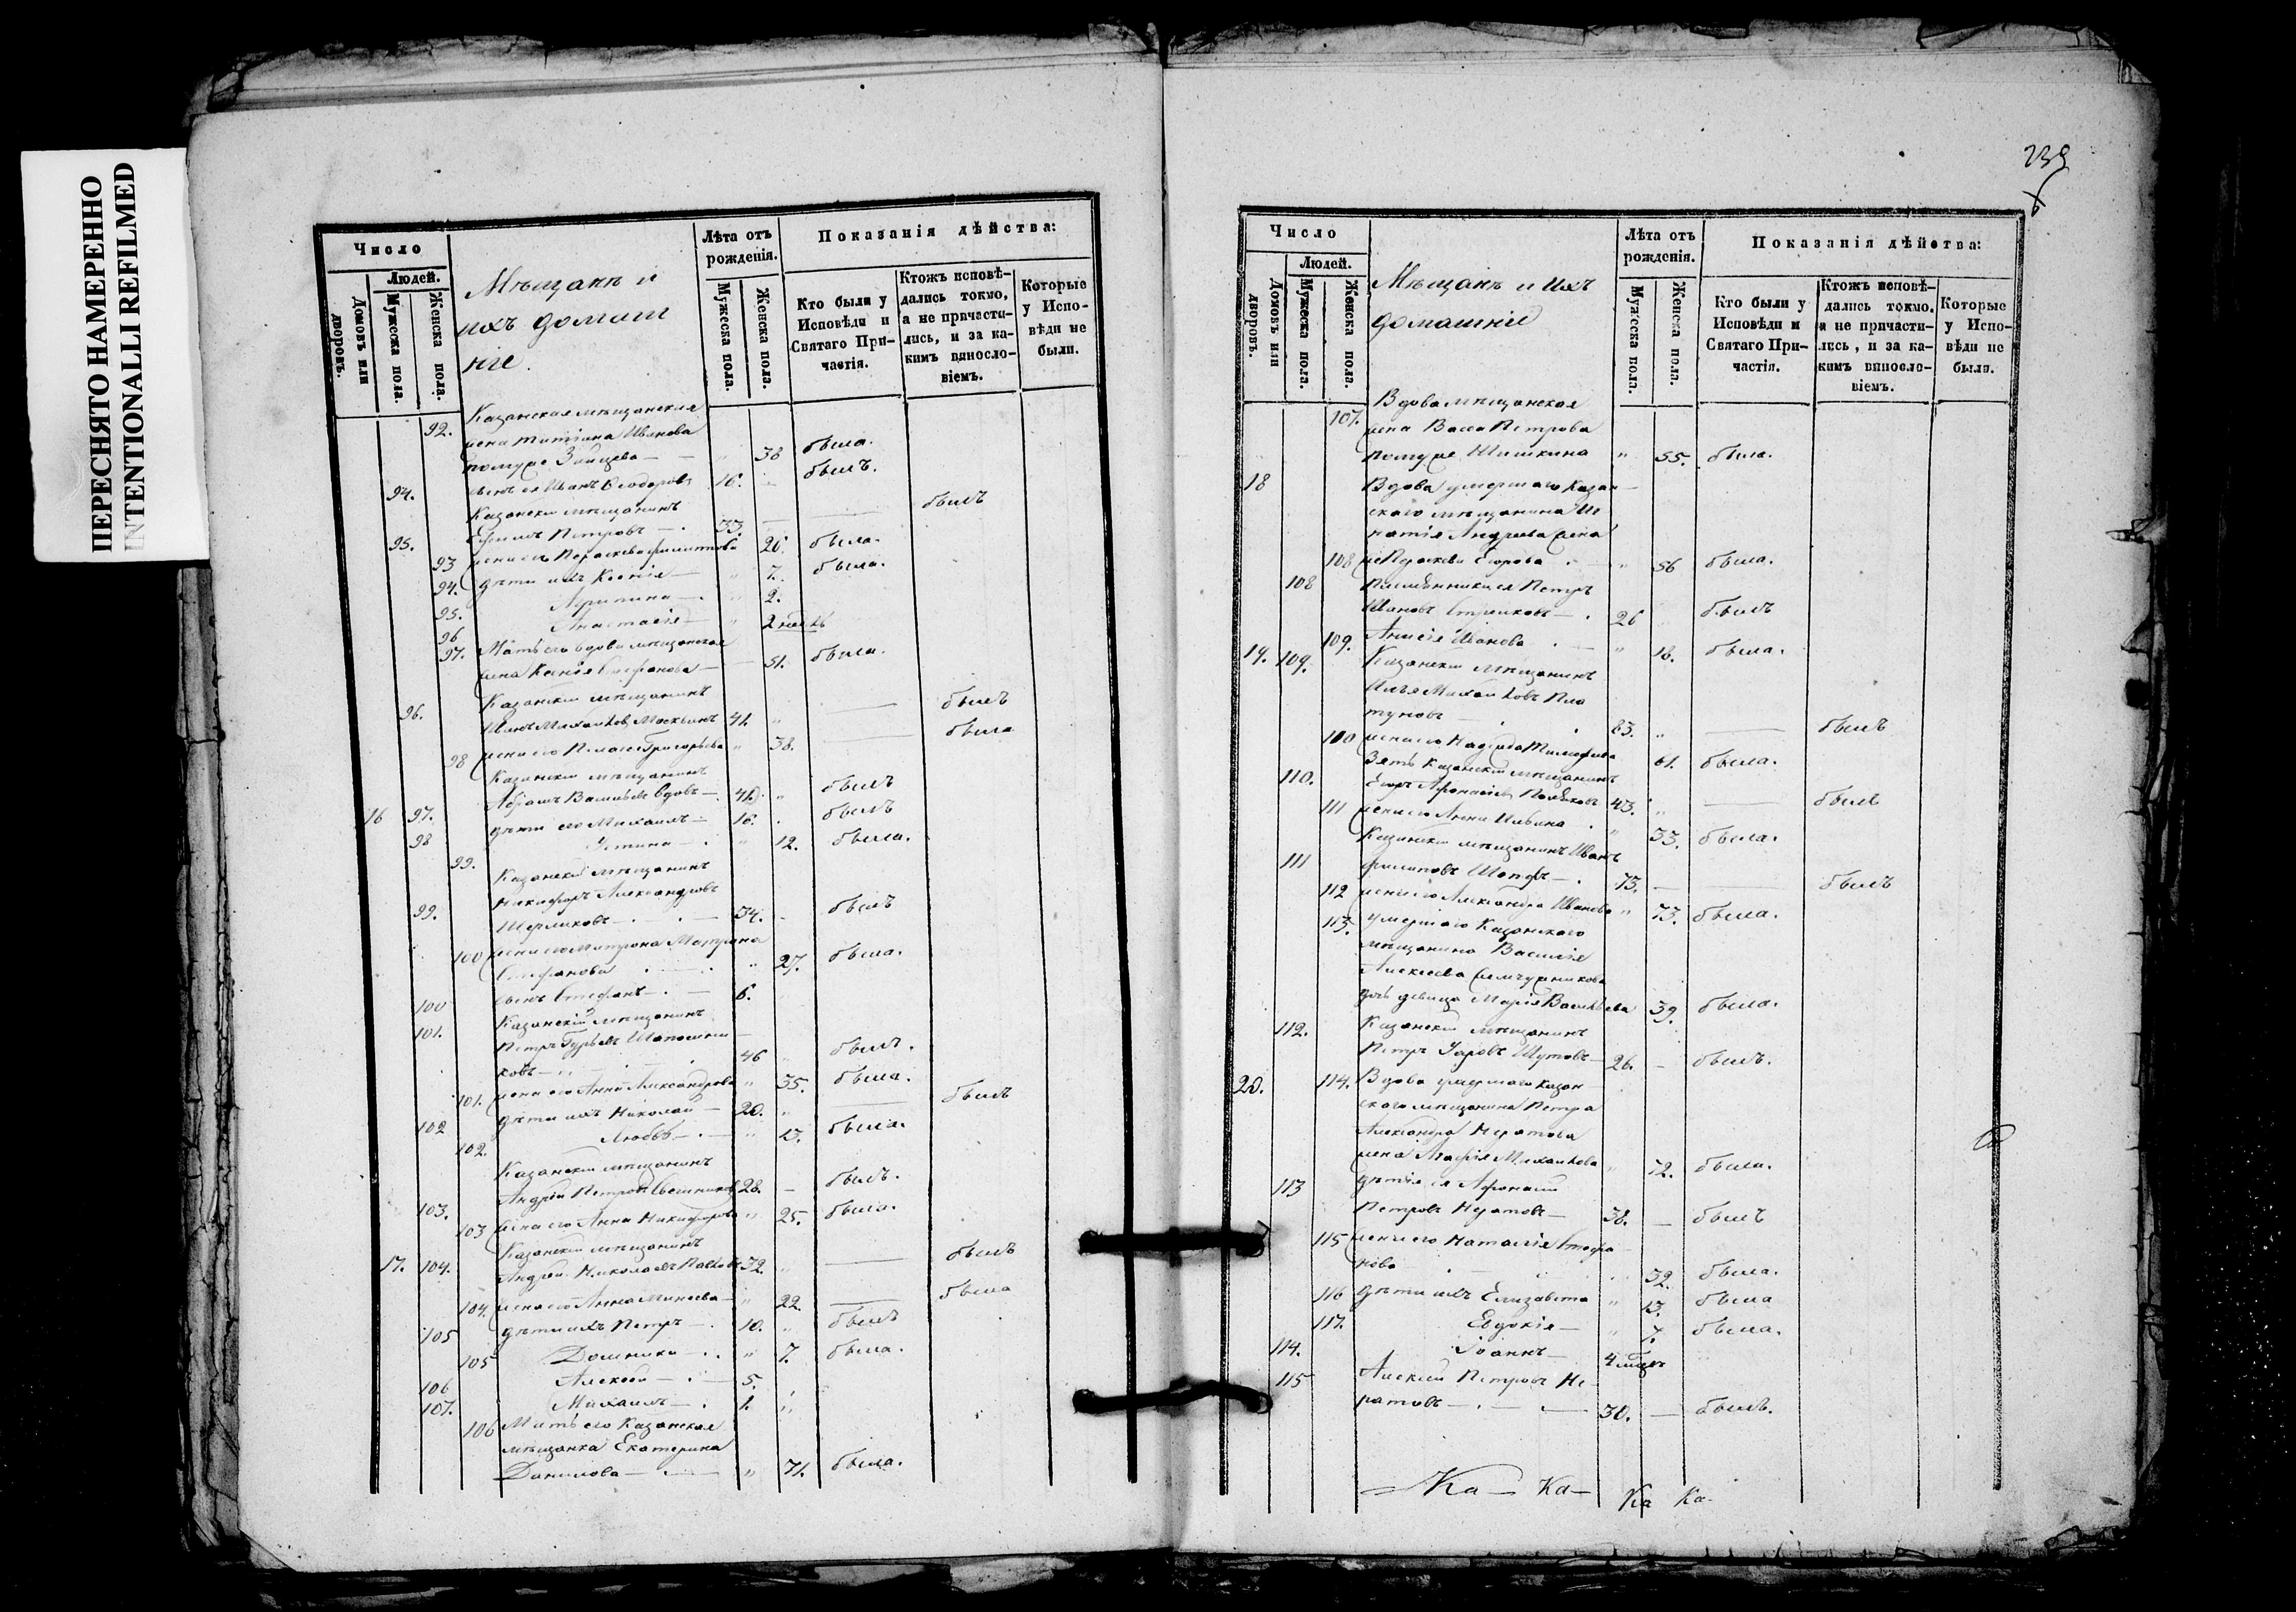 ПЕРЕСНЯТО НАМЕРЕННО
INTENTIONALLI REFILMED
Число
Людей.
Домовъ или дворовъ.
Мужеска пола.
Женска пола.
Мѣщанъ и
ихъ домаш
ніе.
Лѣта отъ рожденія.
Мужеска пола.
Женска пола.
Показанія дѣйства:
Кто были у Исповѣди и Святаго Причастія.
Ктожъ исповѣдались токмо, а не причастились, и за какимъ винословіемъ.
Которые у Исповѣди не были.
92. Казанская мѣщанская
жена Татіана Иванова
помуже Зайцева — " 38 была.
94. сынъ ея Иванъ Ѳеодоровъ 16. былъ.
Казанскій мѣщанинъ
95. Ефимъ Петровъ — 33. — былъ
93 жена его Параскева Филиппова 26. была.
94. дѣти ихъ Ксенія — " 7. была.
95. Агрипина — " 2.
96 Анастасія — " 2 недѣль
97. Мать его вдова мѣщанская
жена Ксенія Стефанова — 51. была.
Казанскій мѣщанинъ
96. Иванъ Михайловъ Москвинъ 41. " — былъ
98 жена его Пелагея Григорьева " 38. — была
Казанскій мѣщанинъ
16 97. Абрамъ Васильевъ вдовъ — 41. " былъ
98 дѣти его Михаилъ — 16. былъ
99. Устина — " 12. была.
Казанскій мѣщанинъ
Никифоръ Александровъ
99. — 34. — былъ
100 жена его Матрона Матрона
Стефанова " 27. была.
100 сынъ Стефанъ — 6.
101. Казанскій мѣщанинъ
Петръ Гурьевъ Шапошни
ковъ — 46 " былъ.
101. жена его Анна Александрова " 35. была.
102 дѣти ихъ Николай — 20. " — былъ
102. Любовь — " 13. была.
Казанскій мѣщанинъ
103. Андрей Петровъ Свешниковъ 28. — былъ.
103 жена его Анна Никифорова " 25. была.
Казанскій мѣщанинъ
17. 104. Андрей Николаевъ Павловъ 32. " — былъ
104. жена его Анна Минеева — " 22. — была
105 дѣти ихъ Петръ — 10. " былъ
105 Домника — " 7. была.
106 Алексей — 5.
107. Михаилъ — 1. "
106 Мать его Казанская
мѣщанка Екатерина
Данилова — " 71. была.
239
Число
Людей.
Домовъ или дворовъ.
Мужеска пола.
Женска пола.
Мѣщанъ и ихъ
домашніе
Лѣта отъ рожденія.
Мужеска пола.
Женска пола.
Показанія дѣйства:
Кто были у Исповѣди и Святаго Причастія.
Ктожъ исповѣдались токмо, и не причастились, и за какимъ винословіемъ.
Которые у Исповѣди не были.
Вдова мѣщанская
107. жена Васса Петрова
помуже Шишкина " 55. была.
18 Вдова умершаго Казан
скаго мѣщанина Иг
натія Андреева жена
108 Параскева Егорова " 56 была.
108 Племянники ея Петръ
Ивановъ Стрелковъ — 26 былъ
109. Анисія Иванова " 18. была.
19. 109. Казанскій мѣщанинъ
Илья Михайловъ Пла
туновъ 83. " — былъ
110 жена его Надежда Тимофеева 61. была.
Зять Казанскій мѣщанинъ
110. Егоръ Афонасьевъ Поляковъ 43. " — былъ
111 жена его Анна Ильина " 33. была.
Казанскій мѣщанинъ Иванъ
111 Филиповъ — 73. — былъ
112 жена его Александра Иванова " 73. была.
113. Умершаго Казанскаго
мѣщанина Василія
Алексеева
дочь девица Марія Васильева 39. была.
112. Казанскій мѣщанинъ
Петръ Уаровъ Шутовъ — 26. — былъ.
20. 114. Вдова умершаго Казан
скаго мѣщанина Петра
Александра Нератова
жена Марфія Михайлова " 72. была.
113 дѣтія ея Афонасій
Петровъ Нератовъ — 38. — былъ
115 жена его Наталія Стефа
нова 32. была.
116 дѣти ихъ Елизавета " 13. была
117. Евдокія — " 7. была.
114. Іоаннъ — 4 мѣсяц
115 Алексей Петровъ Не
ратовъ — 30. — былъ.
Ка — Ка — Ка Ка-